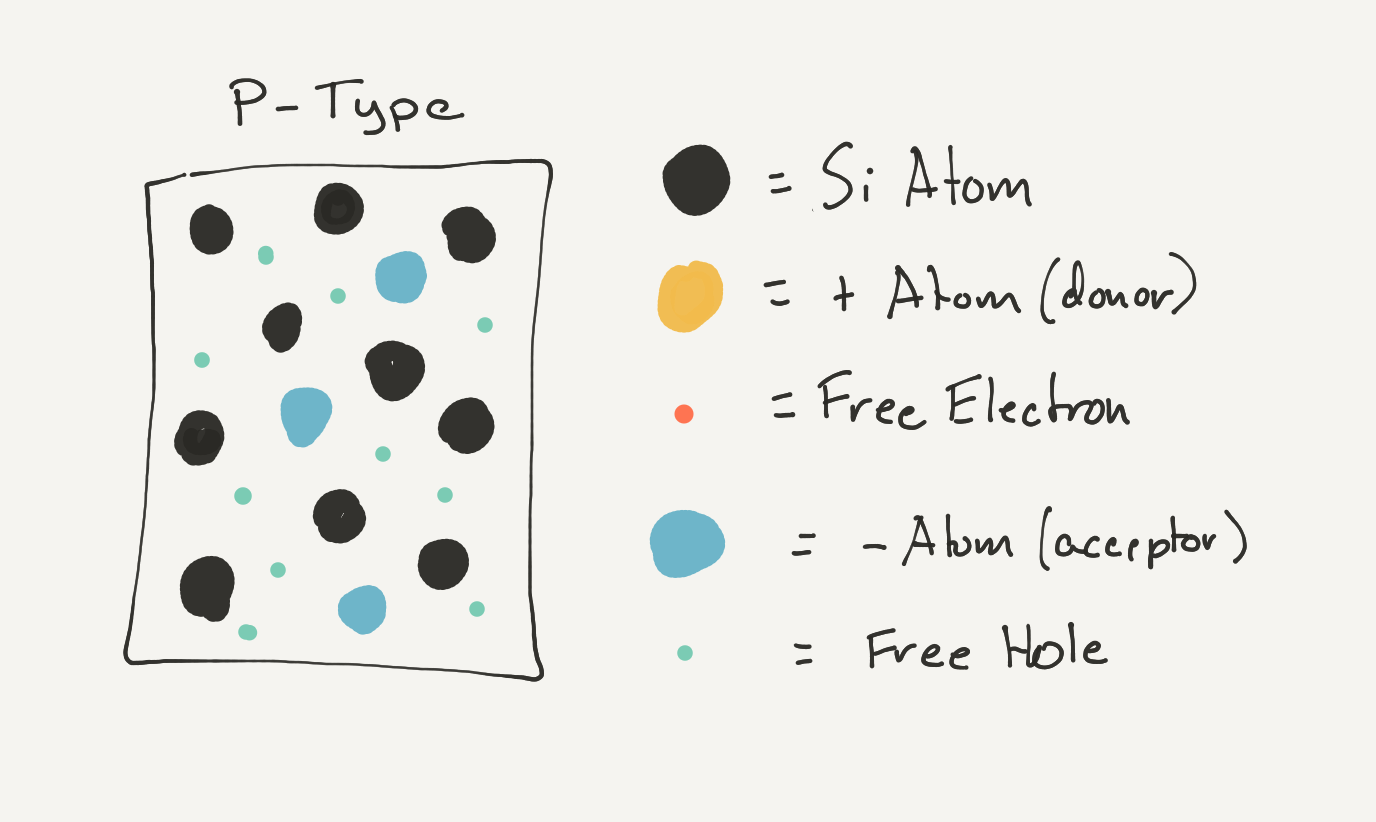 P-Type
= Si Atom
= + Atom (donor)
= Free Electron
= - Atom (acceptor)
= Free Hole